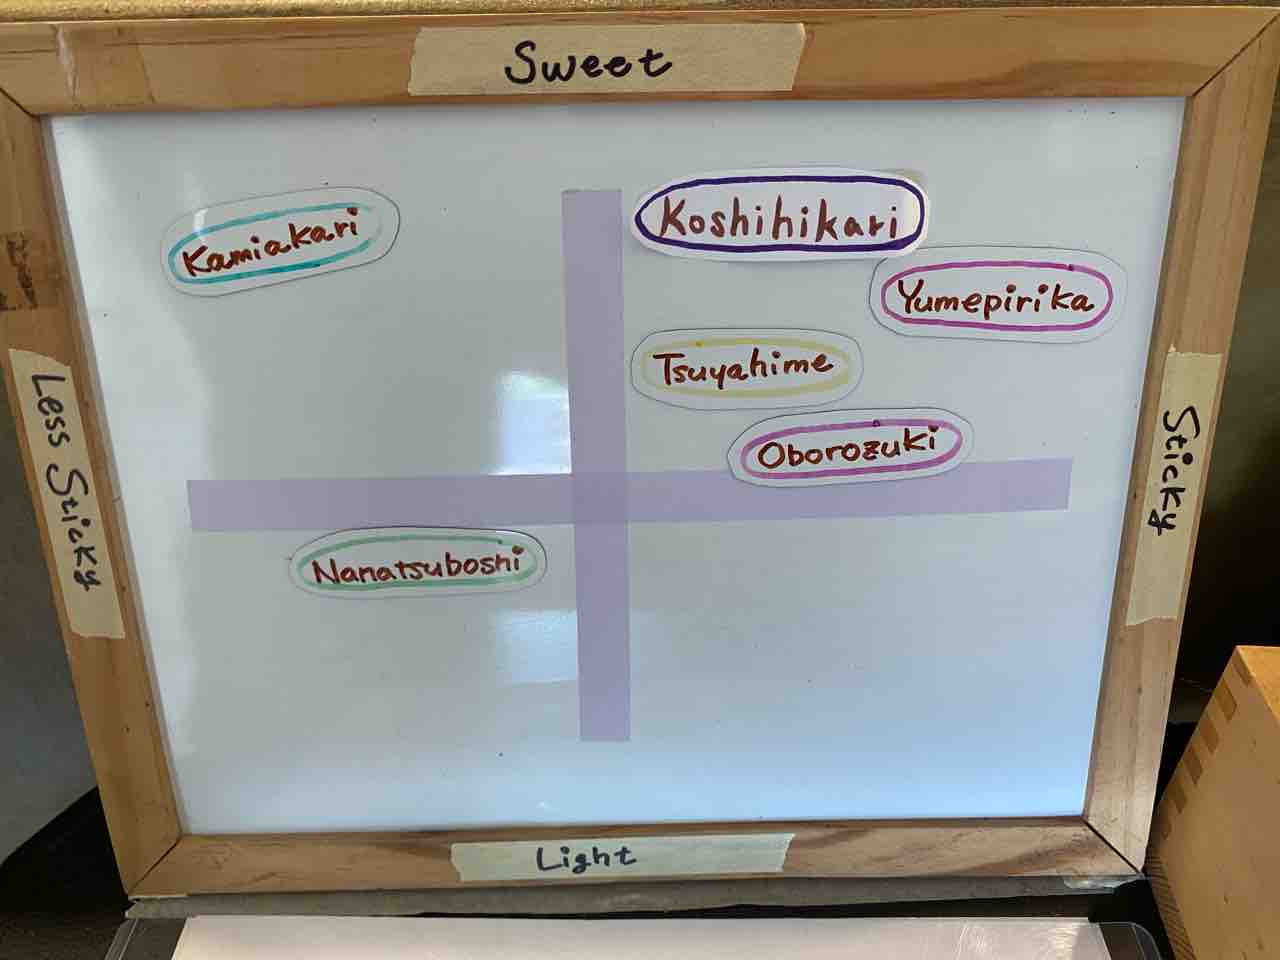 Sweet
Kamiakari
Koshihikari
Yumepirika
Tsuyahime
Less Sticky
Sticky
Oborozuki
Nanatsuboshi
Light